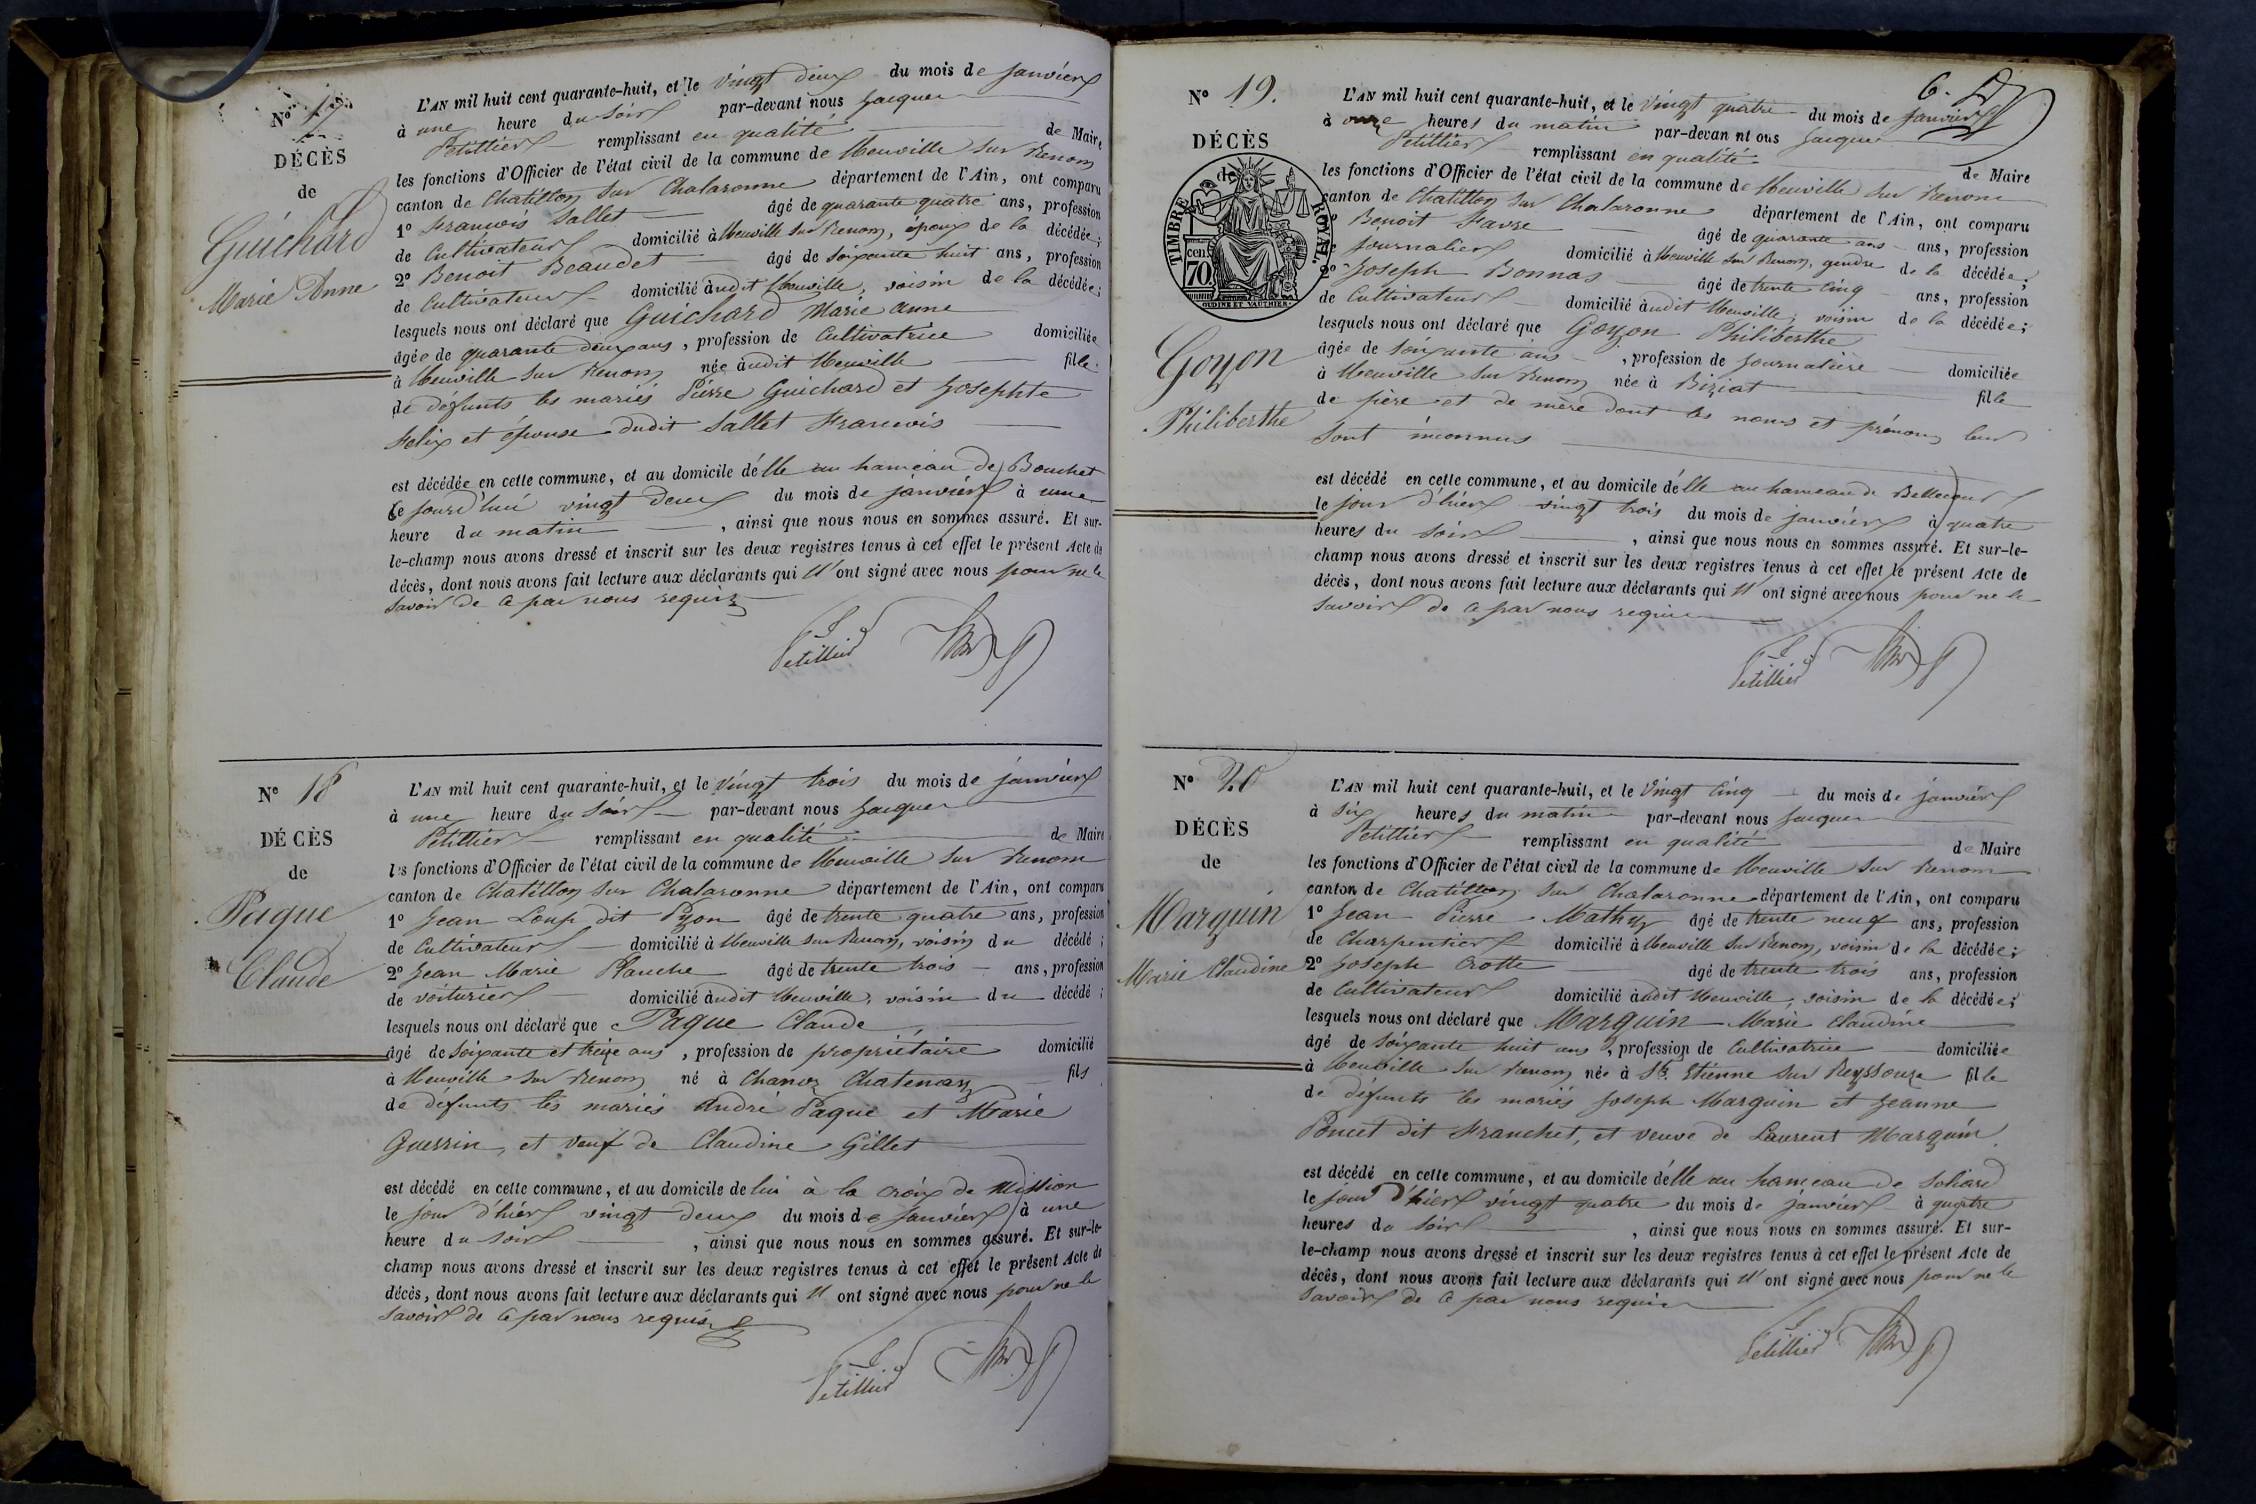 N° 17.
DÉCÈS
de
Guichard
Marie Anne
L'AN mil huit cent quarante-huit, et le vingt deux du mois de janvier
à une heure du soir par-devant nous Jacques
Petillier remplissant en qualité de Maire
les fonctions d'Officier de l'état civil de la commune de Neuville sur Renom
canton de Chatillon sur Chalaronne département de l'Ain, ont comparu
1° François Sallet âgé de quarante quatre ans, profession
de Cultivateur domicilié à Neuville sur Renom, époux de la décédée;
2° Benoit Beaudet âgé de soixante huit ans, profession
de Cultivateur domicilié àudit Neuville, voisin de la décédée;
lesquels nous ont déclaré que Guichard Marie Anne
âgée de quarante deux ans, profession de Cultivatrice domiciliée
à Neuville sur Renom née àudit Neuville fille
de défunts les mariés Pierre Guichard et Josephte
Felix et épouse dudit Sallet François
est décédée en cette commune, et au domicile d'élle au hameau de Bouchet
ce jourd'hui vingt deux du mois de janvier à une
heure du matin, ainsi que nous nous en sommes assuré. Et sur-
le-champ nous avons dressé et inscrit sur les deux registres tenus à cet effet le présent Acte de
décès, dont nous avons fait lecture aux déclarants qui n'ont signé avec nous pour ne le
savoir de ce par nous requis
Petillier
N° 18
DÉCÈS
de
Paque
Claude
L'AN mil huit cent quarante-huit, et le vingt trois du mois de janvier
à une heure du soir par-devant nous Jacques
Petillier remplissant en qualité de Maire
les fonctions d'Officier de l'état civil de la commune de Neuville sur Renom
canton de Chatillon sur Chalaronne département de l'Ain, ont comparu
1° Jean Loup dit Pyon âgé de trente quatre ans, profession
de Cultivateur domicilié à Neuville sur Renom, voisin du décédé;
2° Jean Marie Planche âgé de trente trois ans, profession
de voiturier domicilié àudit Neuville, voisin du décédé;
lesquels nous ont déclaré que Paque Claude
âgé de soixante et treize ans, profession de propriétaire domicilié
à Neuville sur Renom né à Chanoz Chatenay fils
de défunts les mariés André Paque et Marie
Guerrin, et veuf de Claudine Gillet
est décédé en cette commune, et au domicile de lui à la croix de Mission
le jour d'hier vingt deux du mois de janvier à une
heure du soir, ainsi que nous nous en sommes assuré. Et sur-le-
champ nous avons dressé et inscrit sur les deux registres tenus à cet effet le présent Acte de
décès, dont nous avons fait lecture aux déclarants qui n'ont signé avec nous pour ne le
savoir de ce par nous requis
Petillier
6.
N° 19.
DÉCÈS
de
TIMBRE ROYAL.
70 cen.
OUDINÉ ET VAUTHIER
Goyon
Philiberthe
L'AN mil huit cent quarante-huit, et le vingt quatre du mois de janvier
à onze heures du matin par-devan nt ous Jacques
Petillier remplissant en qualité de Maire
les fonctions d'Officier de l'état civil de la commune de Neuville sur Renom
canton de Chatillon sur Chalaronne département de l'Ain, ont comparu
Benoit Favre âgé de quarante ans ans, profession
journalier domicilié à Neuville sur Renom, gendre de la décédée;
2° Joseph Bonnas âgé de trente cinq ans, profession
de Cultivateur domicilié àudit Neuville; voisin de la décédée;
lesquels nous ont déclaré que Goyon Philiberthe
âgée de soixante ans, profession de journalière domiciliée
à Neuville sur Renom née à Biziat fille
de père et de mère dont les noms et prénoms leur
sont inconnus
est décédé en cette commune, et au domicile d'élle au hameau de Bellecour
le jour d'hier vingt trois du mois de janvier à quatre
heures du soir, ainsi que nous nous en sommes assuré. Et sur-le-
champ nous avons dressé et inscrit sur les deux registres tenus à cet effet le présent Acte de
décès, dont nous avons fait lecture aux déclarants qui n'ont signé avec nous pour ne le
savoir de ce par nous requis
Petillier
N° 20
DÉCÈS
de
Marguin
Marie Claudine
L'AN mil huit cent quarante-huit, et le vingt cinq du mois de janvier
à six heures du matin par-devant nous Jacques
Petillier remplissant en qualité de Maire
les fonctions d'Officier de l'état civil de la commune de Neuville sur Renom
canton de Chatillon sur Chalaronne département de l'Ain, ont comparu
1° Jean Pierre Mathy âgé de trente neuf ans, profession
de Charpentier domicilié à Neuville sur Renom, voisin de la décédée;
2° Joseph Crotte âgé de trente trois ans, profession
de Cultivateur domicilié àudit Neuville, voisin de la décédée;
lesquels nous ont déclaré que Marguin Marie Claudine
âgé de soixante huit ans, profession de Cultivatrice domiciliée
à Neuville sur Renom née à St. Etienne sur Reyssouze fille
de défunts les mariés Joseph Marguin et Jeanne
Poncet dit Franchet, et veuve de Laurent Marguin.
est décédé en cette commune, et au domicile d'élle au hameau de Soliard
le jour d'hier vingt quatre du mois de janvier à quatre
heures du soir, ainsi que nous nous en sommes assuré. Et sur-
le-champ nous avons dressé et inscrit sur les deux registres tenus à cet effet le présent Acte de
décès, dont nous avons fait lecture aux déclarants qui n'ont signé avec nous pour ne le
savoir de ce par nous requis
Petillier